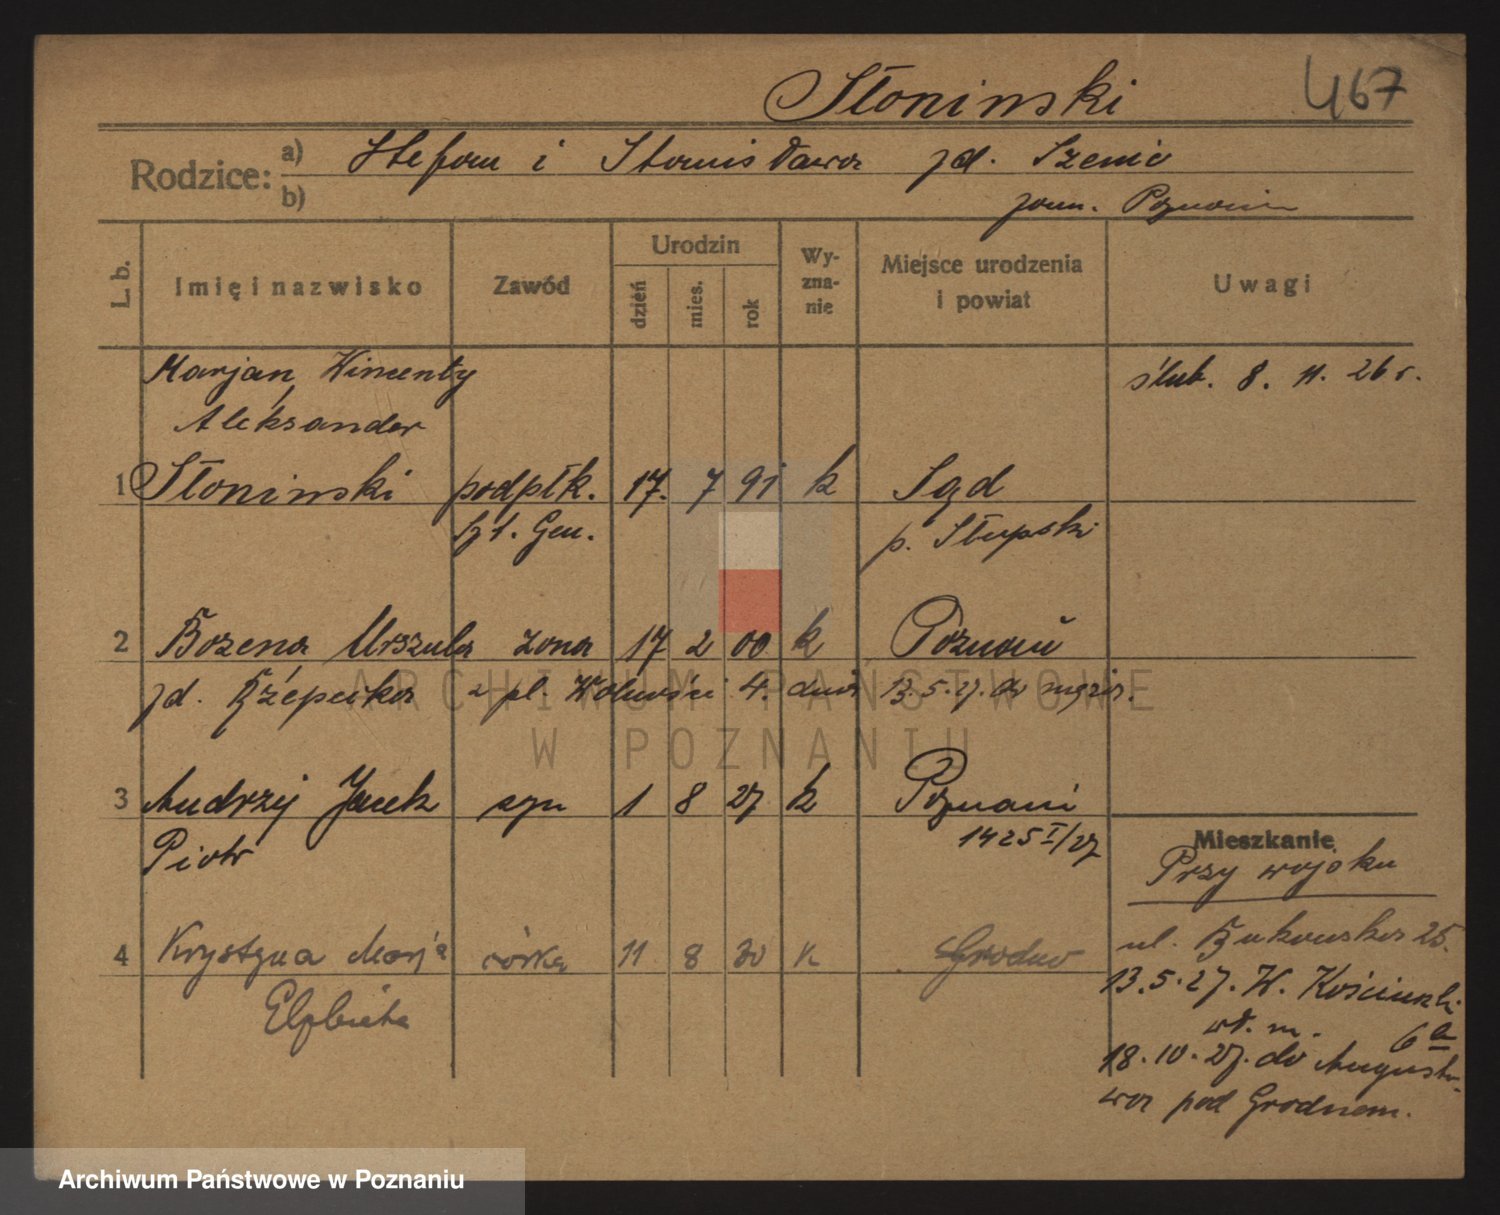 Słoninski 467
Rodzice: a) Stefan i Stanisława zd. Szenic
b) zam. Poznaniu
L. b. Imię i nazwisko Zawód Urodzin dzień mies. rok Wy-zna-nie Miejsce urodzenia i powiat Uwagi
Marjan, Wincenty ślub. 8. 11. 26 r.
Aleksander
1 Słoninski podpłk. 17. 7 91 k Sąd
Szt. Gen. p. Słupski
2 Bożena Urszula żona 17 2 00 k Poznań
zd. Rzepecka z pl. Wolności 4. dnia 13.5.27. do męża.
3 Andrzej Jacek syn 1 8 27 k Poznań
Piotr 1425 I/27
Mieszkanie
Przy wojsku
4 Krystyna Marja córka 11 8 30 k Grodno
Elżbieta
ul. Bukowska 25.
13.5.27. W. Kościuszki
wł. m. 6a
18.10.27. do Augusto-
wa pod Grodnem.
ARCHIWUM PAŃSTWOWE
W POZNANIU
Archiwum Państwowe w Poznaniu